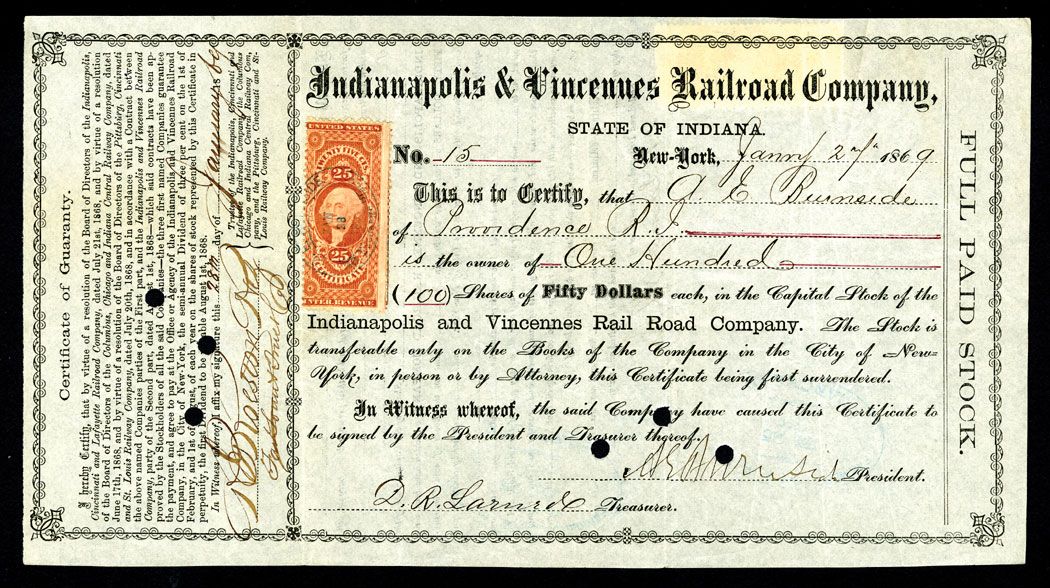 Indianapolis & Vincennes Railroad Company,
STATE OF INDIANA.
No. 15 New-York, Janry 27th 1869
This is to Certify, that A E Burnside
of Providence R.I.
is the owner of One Hundred
(100) Shares of Fifty Dollars each, in the Capital Stock of the
Indianapolis and Vincennes Rail Road Company. The Stock is
transferable only on the Books of the Company in the City of New-
York, in person or by Attorney, this Certificate being first surrendered.
In Witness whereof, the said Company have caused this Certificate to
be signed by the President and Treasurer thereof.
A E Burnside President.
D. R. Larned Treasurer.
FULL PAID STOCK.
UNITED STATES
25 25
25 25
INTER. REVENUE
Certificate of Guaranty.
I hereby Certify, that by virtue of a resolution of the Board of Directors of the Indianapolis,
Cincinnati and Lafayette Railroad Company, dated July 21st, 1868, and by virtue of a resolution
of the Board of Directors of the Columbus, Chicago and Indiana Central Railway Company, dated
June 17th, 1868, and by virtue of a resolution of the Board of Directors of the Pittsburg, Cincinnati
and St. Louis Railway Company, dated July 20th, 1868, and in accordance with a Contract between
the above named Companies parties of the First part, and the Indianapolis and Vincennes Railroad
Company, party of the Second part, dated August 1st, 1868—which said contracts have been ap-
proved by the Stockholders of all the said Companies—the three first named Companies guarantee
the payment, and agree to pay at the Office or Agency of the Indianapolis and Vincennes Railroad
Company, in the City of New-York, the semi-annual Dividend of three per cent on the 1st of
February, and 1st of August, of each year on the shares of stock represented by this Certificate in
perpetuity, the first Dividend to be payable August 1st, 1868.
In Witness whereof, I affix my signature this 28th day of January 69
Trustee of the Indianapolis, Cincinnati and
Lafayette Railroad Company, the Columbus
Chicago and Indiana Central Railway Com-
pany, and the Pittsburg, Cincinnati and St.
Louis Railway Company.